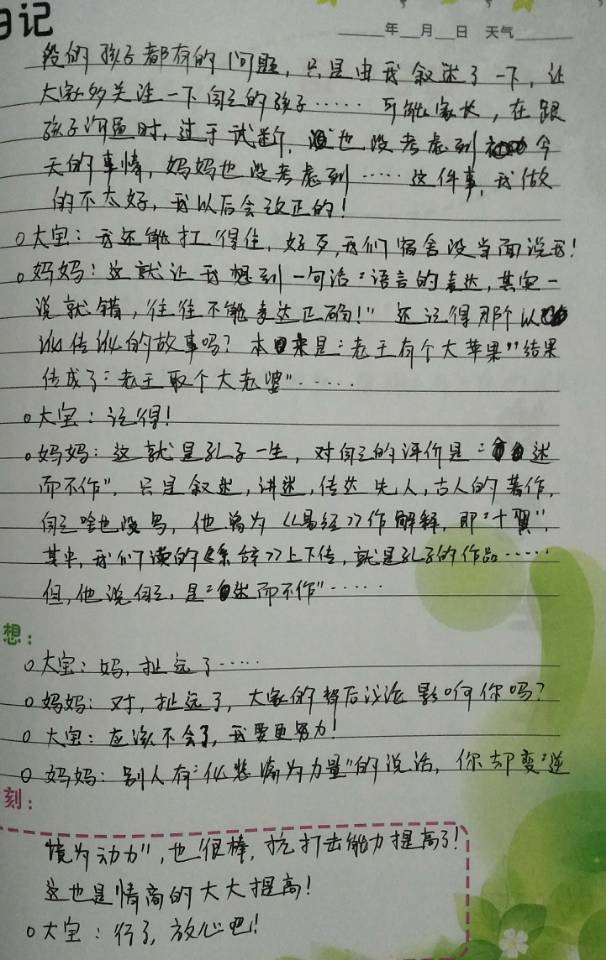 日记
年 月 日 天气
段的孩子都有的问题，只是由我叙述了一下，让
大家多关注一下自己的孩子……可能家长，在跟
孩子沟通时，过于武断，也没考虑到今
天的事情，妈妈也没考虑到……这件事，我做
的不太好，我以后会改正的！
大宝：我还能扛得住，好歹，我们宿舍没当面说我！
妈妈：这就让我想到一句话："语言的表达，其实一
说就错，往往不能表达正确！"还记得那个以
讹传讹的故事吗？本来是："老王有个大苹果"结果
传成了："老王取个大老婆"……
大宝：记得！
妈妈：这就是孔子一生，对自己的评价是："述
而不作"，只是叙述，讲述，传达先人，古人的著作，
自己啥也没写，他曾为《易经》作解释，即"十翼"，
其中，我们读的《系辞》上下传，就是孔子的作品……
但，他说自己，是："述而不作"……
想：
大宝：妈，扯远了……
妈妈：对，扯远了，大家的背后议论影响你吗？
大宝：应该不会了，我要更努力！
妈妈：别人有"化悲痛为力量"的说法，你却变"逆
刻：
境为动力"，也很棒，抗打击能力提高了！
这也是情商的大大提高！
大宝：行了，放心吧！